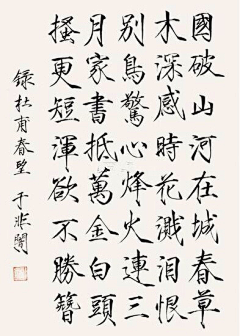 國破山河在城春草
木深感時花濺泪恨
別鳥驚心烽火連三
月家書抵萬金白頭
搔更短渾欲不勝簪
錄杜甫春望 于非闇